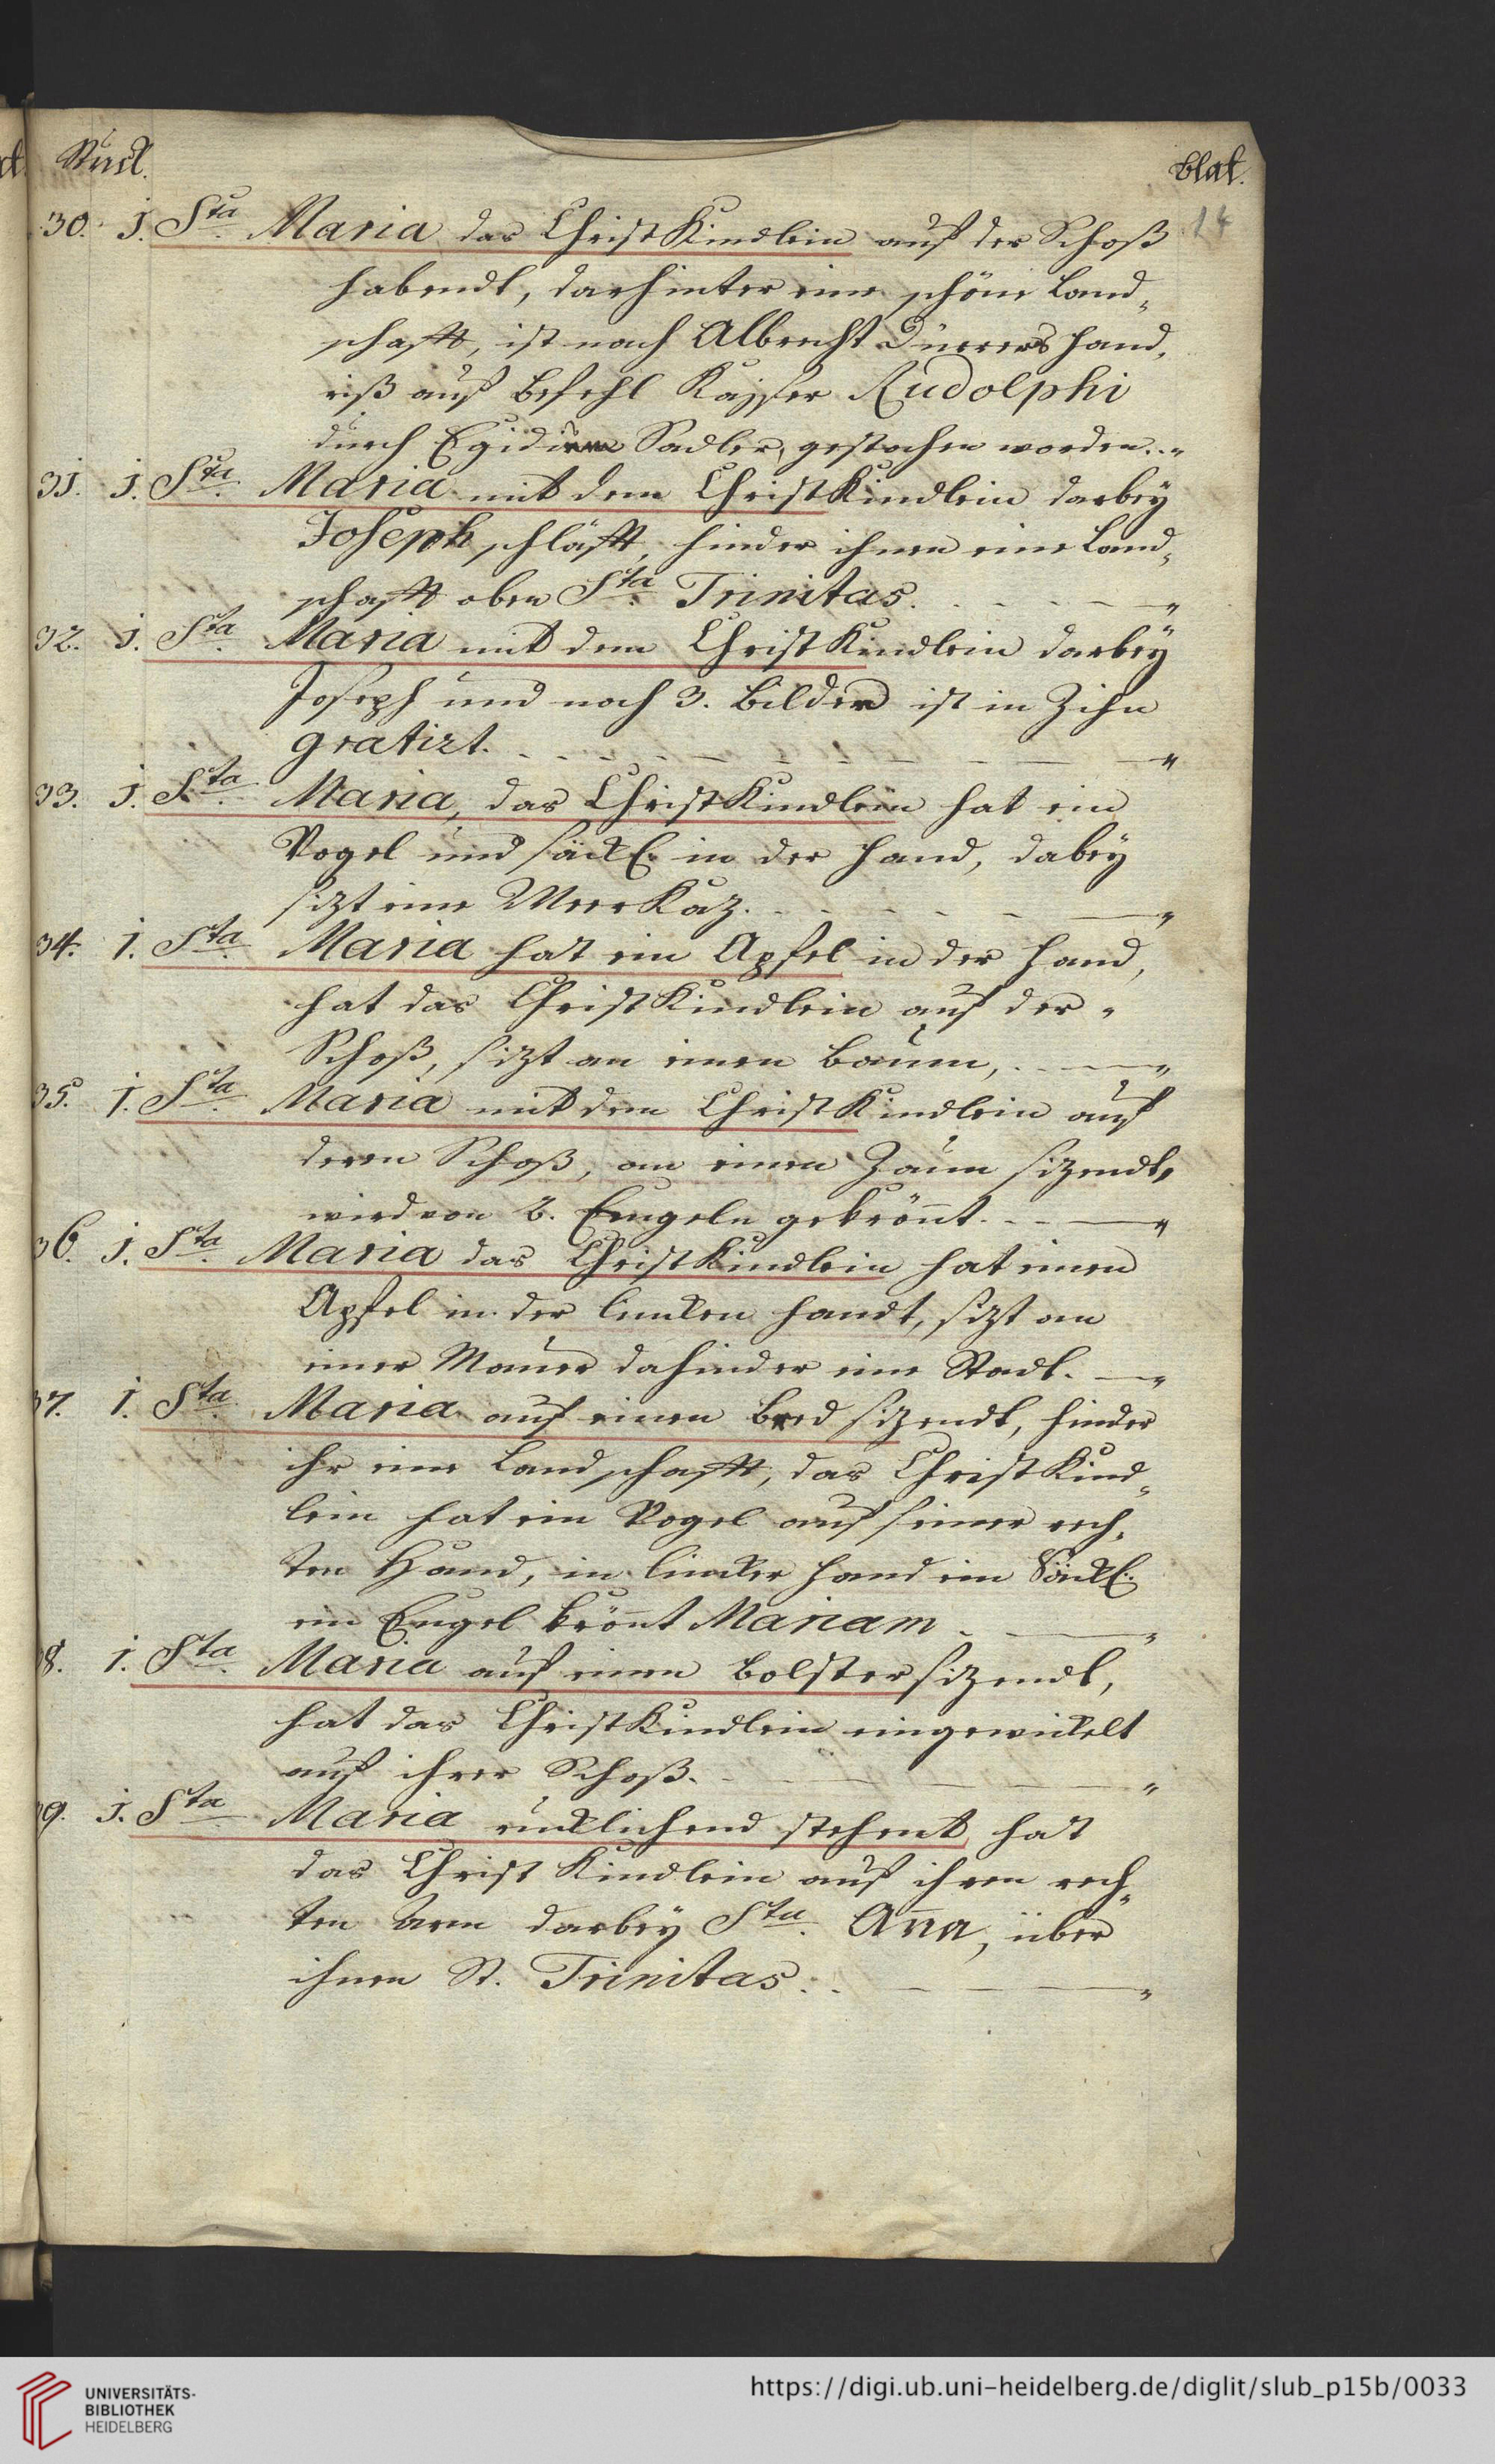 Stuck. blat.
14
30. 1. Sta. Maria das Christ Kindlein auf der Schoß
habendt, darhinter eine schöne Land-
schafft, ist nach Albrecht Dürrers Hand-
riß auß Befehl Kayser Rudolphi
durch Egidium Sadler, gestochen worden. . . "
31. 1. Sta. Maria mit dem Christ Kindlein darbey
Joseph schläfft, hinder ihnen eine Land-
schafft oben Sta. Trinitas. . . . — — "
32. 1. Sta. Maria mit dem Christ Kindlein darbey
Joseph und noch 3. Bilder ist in Zihn
gratirt. . . . . — — — — "
33. 1. Sta. Maria, das Christ Kindlein hat ein
Vogel und säckl. in der Hand, dabey
sizt eine Meer Kaz. . . . . — "
34. 1. Sta. Maria hat ein Apfel in der Hand,
hat das Christ Kindlein auf der
Schoß, sizt an einen Baum, . . — "
35. 1. Sta. Maria mit dem Christ Kindlein auf
deren Schoß, an einen Zaum sizendt,
wird von 2. Engeln gekrönnt. . . — "
36. 1. Sta. Maria das Christ Kindlein hat einen
Apfel in der lincken Handt, sizt an
einer Mauer dahinder eine Stadt. — "
37. 1. Sta. Maria auf einen Bred sizendt, hinder
ihr eine Landschafft, das Christ Kind-
lein hat ein Vogel auf seiner rech-
ten Hand, in lincker Hand ein Säckl.
ein Engel krönnt Mariam . — "
38. 1. Sta. Maria auf einen Bolster sizendt,
hat das Christ Kindlein eingewickelt
auf ihrer Schoß. . — — — "
39. 1. Sta. Maria rücklichend stehent, hat
das Christ Kindlein auf ihren rech-
ten Arm darbey Sta. Anna, über
ihnen St. Trinitas. . . — — — "
UNIVERSITÄTS-
BIBLIOTHEK
HEIDELBERG
https://digi.ub.uni-heidelberg.de/diglit/slub_p15b/0033